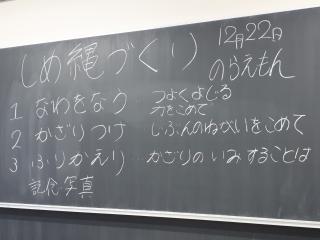 しめ縄づくり 12月22日
のうえもん
1 なわをなう つよくよじる
力をこめて
2 かざりつけ…じぶんのねがいをこめて
3 ふりかえり…かざりのいみすることは
記念写真